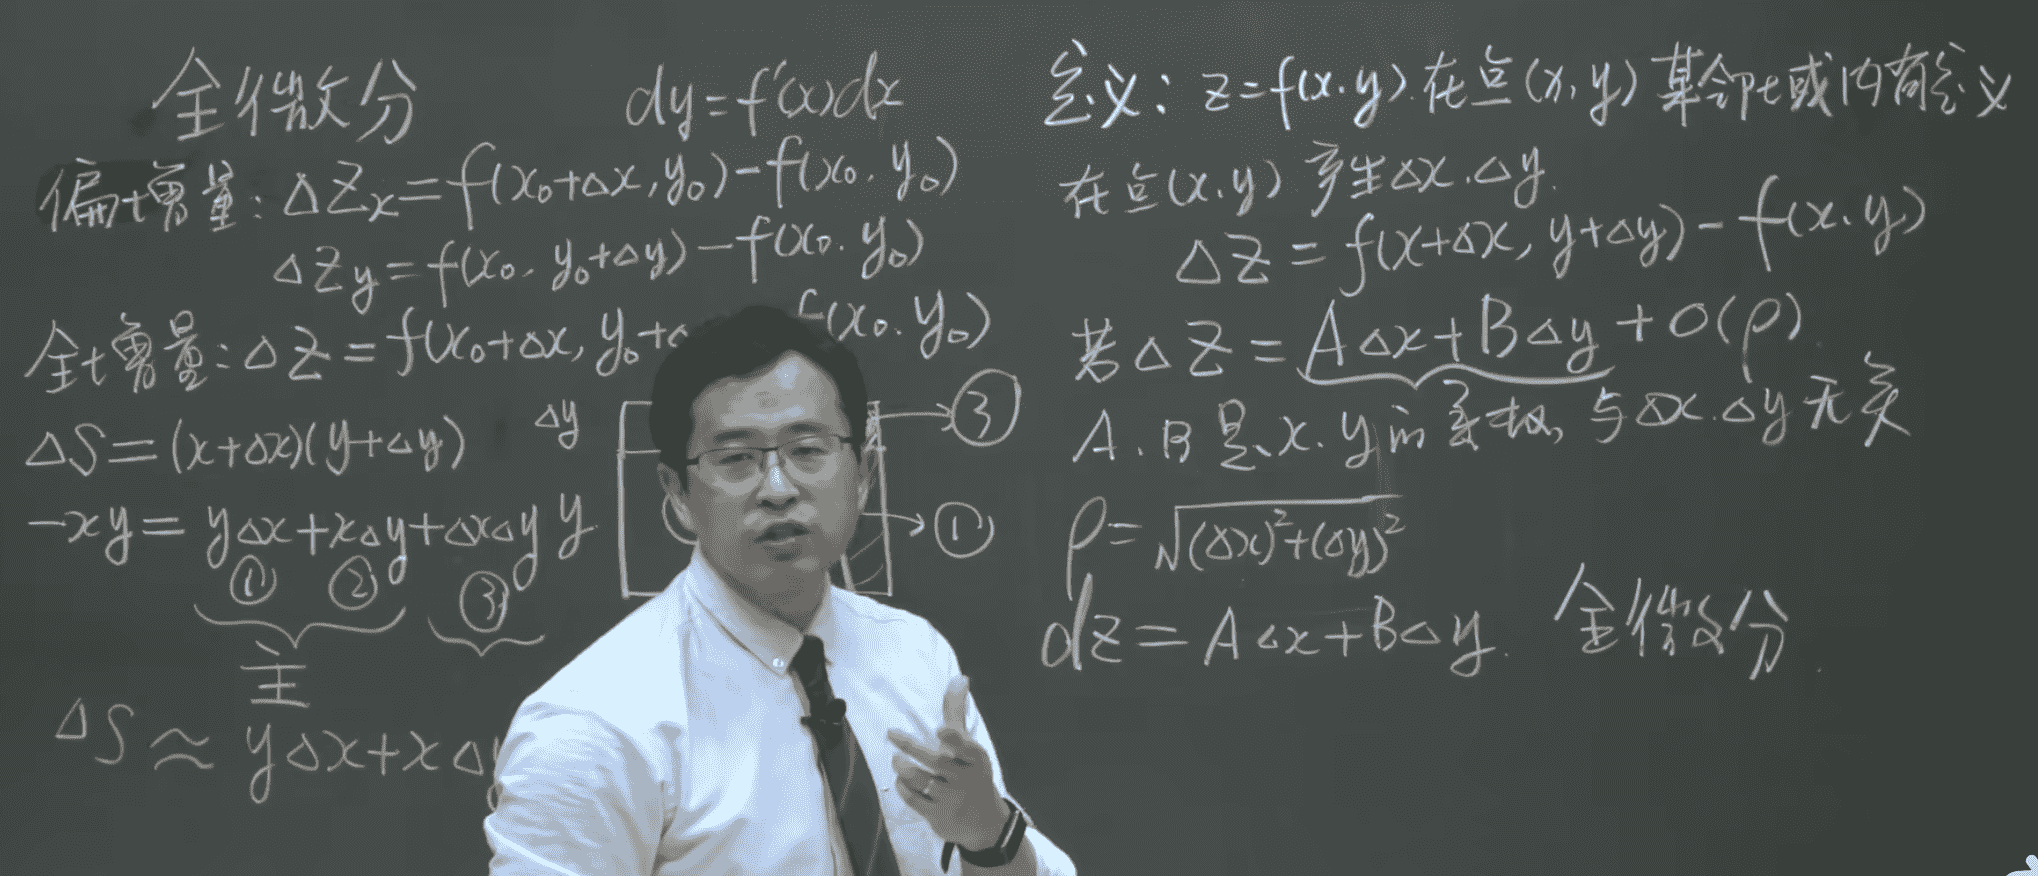 全微分
dy=f'(x)dx
偏增量:ΔZx=f(x₀+Δx,y₀)-f(x₀,y₀)
ΔZy=f(x₀,y₀+Δy)-f(x₀,y₀)
全增量:ΔZ=f(x₀+Δx,y₀+ f(x₀,y₀)
ΔS=(x+Δx)(y+Δy)
-xy=yΔx+xΔy+ΔxΔy
① ② ③
主
ΔS≈yΔx+xΔ
Δy
③
y
①
定义:z=f(x,y)在点(x,y)某邻域内有定义
在点(x,y)产生Δx,Δy.
ΔZ=f(x+Δx,y+Δy)-f(x,y)
若ΔZ=AΔx+BΔy+o(ρ).
A,B是x,y的函数,与Δx,Δy无关
ρ=√(Δx)²+(Δy)²
dz=AΔx+BΔy. 全微分.